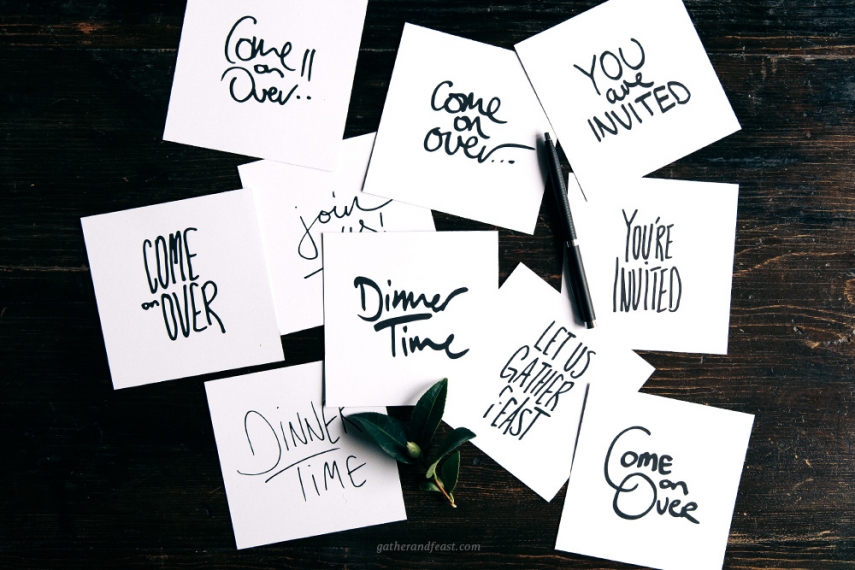 Come
on
Over..!!
Come
on
over...
YOU
are
INVITED
COME
on OVER
join
us!
Dinner
Time
YOU'RE
INVITED
LET US
GATHER
FEAST
DINNER
TIME
Come
on
Over
gatherandfeast.com